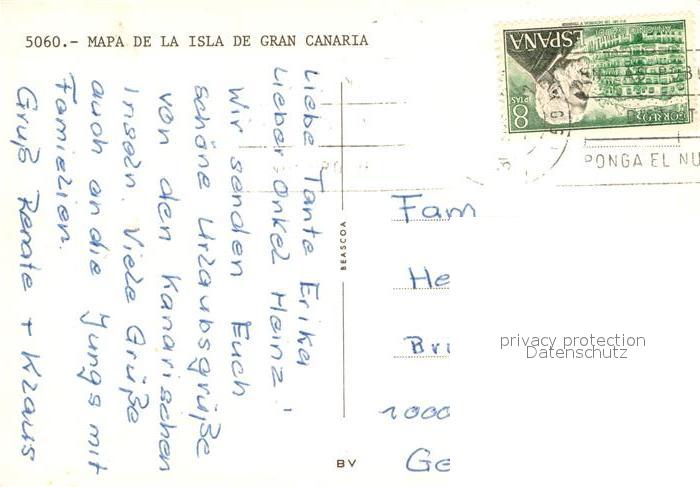 5060.- MAPA DE LA ISLA DE GRAN CANARIA
Liebe Tante Erika
Lieber Onkel Heinz!
Wir senden Euch
schöne Urlaubsgrüße
von den Kanarischen
Inseln. Viele Grüße
auch an die Jungs mit
Familien.
Gruß Renate + Klaus
BEASCOA
BV
ESPAÑA
8 PTAS
CORREOS
PONGA EL NU
Fam
He
Bri
1000
Ge
privacy protection
Datenschutz